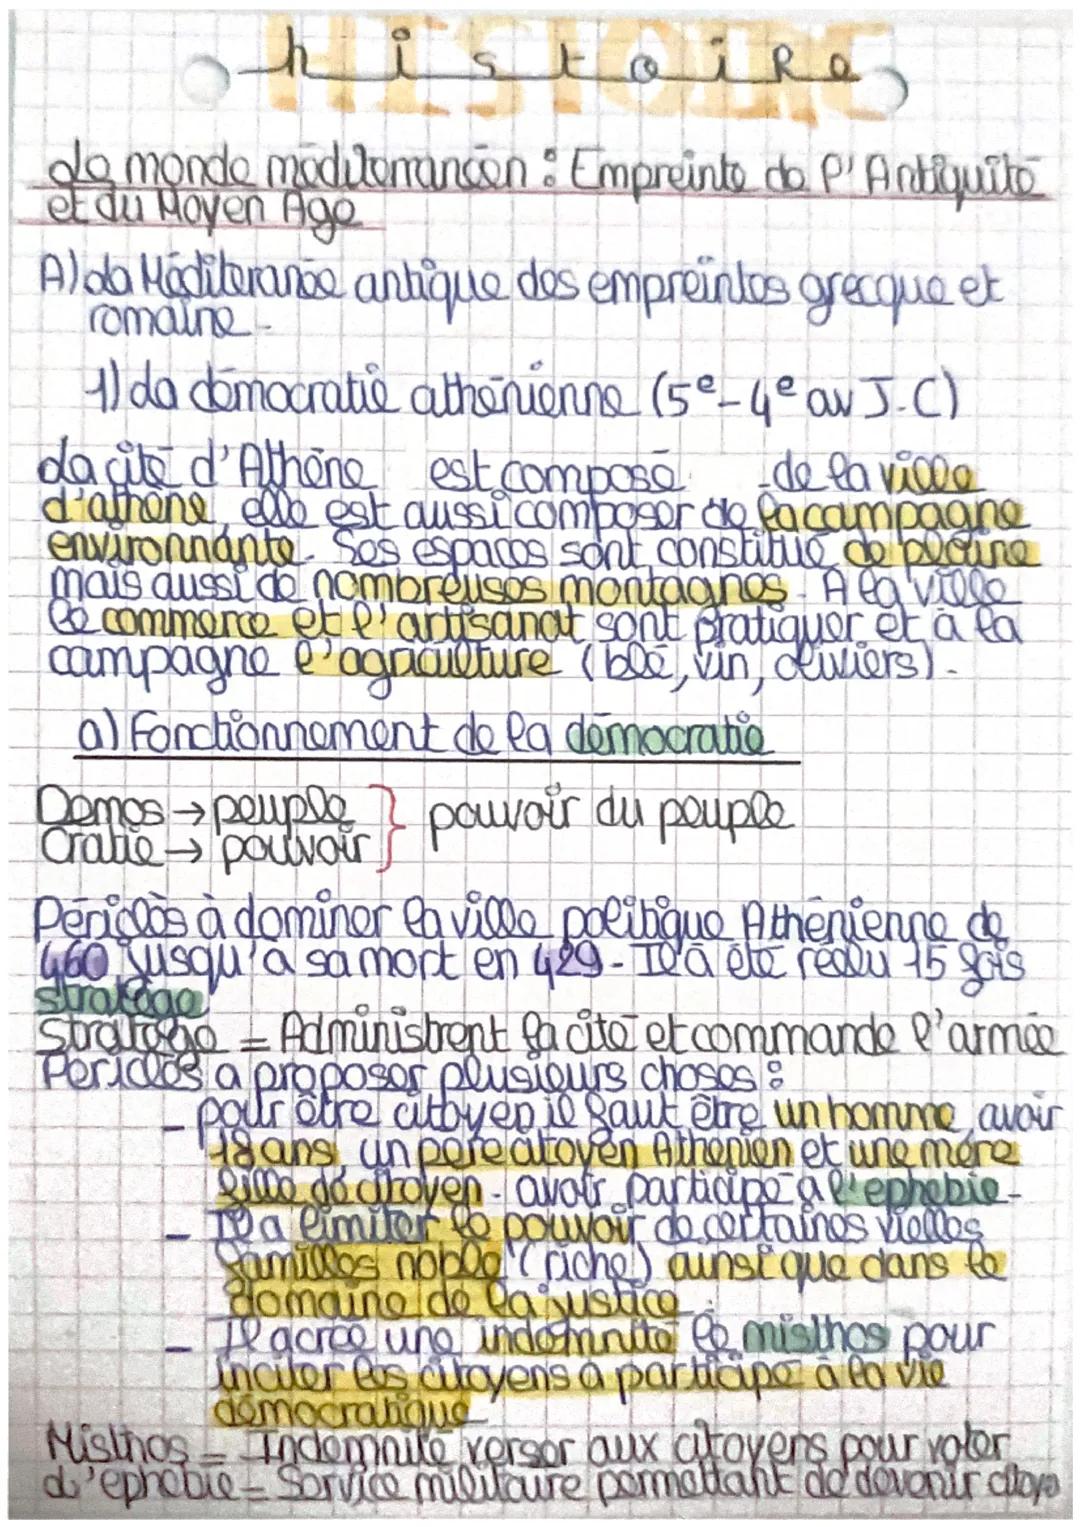 histoire
Le monde méditerranéen : Empreinte de l'Antiquité
et du Moyen Age
A) La Méditeranée antique des empreintes grecque et
romaine.
1) La démocratie athénienne (5e-4e av J.C)
La cité d'Athène est composé de la ville
d'athène, elle est aussi composer de la campagne
environnante. Ses espaces sont constitué de plaine
mais aussi de nombreuses montagnes. A la ville
le commerce et l'artisanat sont pratiquer et à la
campagne l'agriculture (blé, vin, oliviers).
a) Fonctionnement de la démocratie
Demos → peuple } pouvoir du peuple
Cratie → pouvoir
Périclès à dominer la ville politique Athénienne de
460 jusqu'a sa mort en 429. Il a été réélu 15 fois
stratège
Stratège = Administrent la cité et commande l'armée
Périclès a proposer plusieurs choses :
- pour être citoyen il faut être un homme, avoir
18 ans, un père citoyen Athénien et une mère
fille de citoyen. avoir participé à l'ephebie.
- Il a limiter le pouvoir de certaines vielles
familles noble (riche) ainsi que dans le
domaine de la justice.
- Il a crée une indemnité le misthos pour
inciter les citoyens a participé à la vie
démocratique
Misthos = Indemnité verser aux citoyens pour voter
L'ephebie = Service militaire permettant de devenir citoye